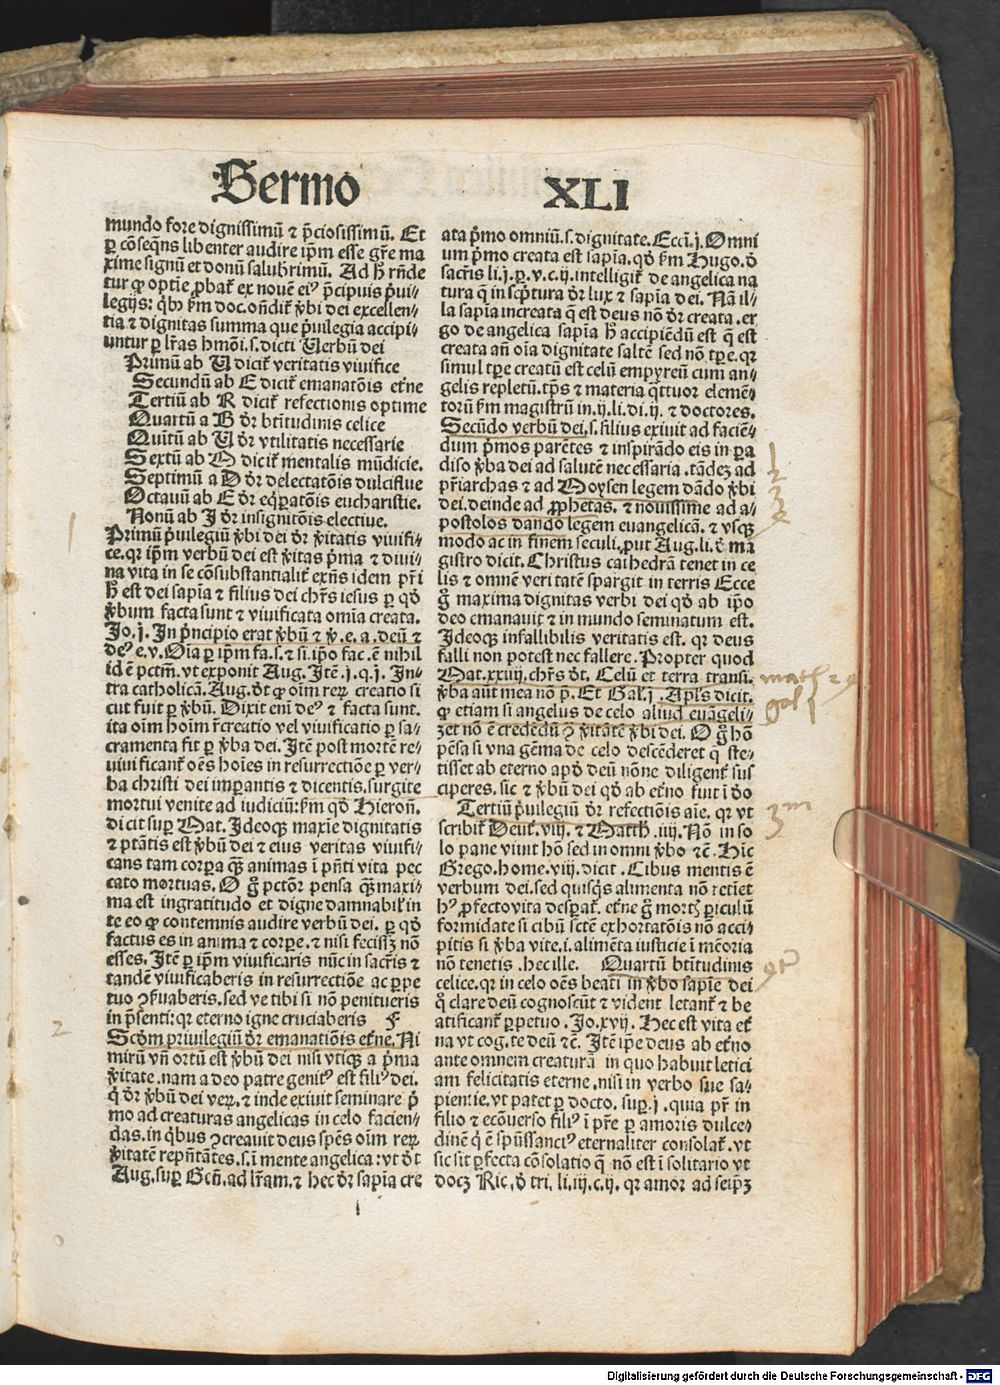 Sermo XLI
mundo fore dignissimū ⁊ p̄ciosissimū. Et
ꝑ cōseq̄ns libenter audire ip̄m esse gr̄e ma
xime signū et donū salubrimū. Ad h̄ rn̄de
tur ꝙ optie ꝓbat̄ ex nouē eiꝰ p̄cipuis p̄ui⸗
legijs: q̄bꝰ ẜm doc. on̄dit̄ v̄bi dei excellen⸗
tia ⁊ dignitas summa que p̄uilegia accipi⸗
untur ꝑ lr̄as hmōi. s. dicti Uerbū dei
Primū ab U dicit̄ veritatis viuifice
Secundū ab E dicit̄ emanatōis et̄ne
Tertiū ab R dicit̄ refectionis optime
Quartū a B dr̄ btītudinis celice
Quītū ab U dr̄ vtilitatis necessarie
Sextū ab M dicit̄ mentalis mūdicie.
Septimū a D dr̄ delectatōis dulciflue
Octauū ab E dr̄ eq̄ꝑatōis eucharistie.
Nonū ab I dr̄ insignitōis electiue.
1
Primū p̄uilegiū v̄bi dei dr̄ v̄itatis viuifi⸗
ce. qꝛ ip̄m verbū dei est v̄itas p̄ma ⁊ diui⸗
na vita in se cōsubstantialit̄ exn̄s idem pr̄i
h̄ est dei sapīa ⁊ filius dei chr̄s iesus ꝑ qd̄
v̄bum facta sunt ⁊ viuificata omīa creata.
Jo. j. In p̄ncipio erat v̄bū ⁊ v̄. e. a. deū ⁊
deꝰ e. v. Oīa ꝑ ip̄m fa. s. ⁊ si. ip̄o fac. ē nihil
id ē pctm̄. vt exponit Aug. Itē. j. q. j. In⸗
tra catholicā. Aug. dt̄ ꝙ oīm reꝝ creatio si
cut fuit ꝑ v̄bū. Dixit eni deꝰ ⁊ facta sunt.
ita oīm hoīm r̄creatio vel viuificatio ꝑ sa⸗
cramenta fit ꝑ v̄ba dei. Itē post mortē re⸗
uiuificant̄ oēs hoīes in resurrectiōe ꝑ ver⸗
ba christi dei imperantis ⁊ dicentis. surgite
mortui venite ad iudiciū: ẜm qd̄ Hieron̄.
dicit suꝑ Mat. Ideoqꝫ maxīe dignitatis
⁊ ptātis est v̄bū dei ⁊ eius veritas viuifi⸗
cans tam corꝑa qꝫ animas ī pn̄ti vita pec
cato mortuas. O g̊ pctōr pensa qꝫ maxi⸗
ma est ingratitudo et digne damnabil̄ in
te eo ꝙ contemnis audire verbū dei. ꝑ qd̄
factus es in anima ⁊ corꝑe. ⁊ nisi fecissꝫ nō
esses. Itē ꝑ ip̄m viuificaris nūc in sacr̄is ⁊
tandē viuificaberis in resurrectiōe ac ꝑpe
tuo ꝯẜuaberis. sed ve tibi si nō penitueris
in p̄senti: qꝛ eterno igne cruciaberis F
2
Scd̄m priuilegiū dr̄ emanatiōis et̄ne. Ni
mirū vn̄ ortū est v̄bū dei nisi vtiqꝫ a p̄ma
v̄itate. nam a deo patre genitꝰ est filiꝰ dei.
q̄ dr̄ v̄bū dei veꝝ. ⁊ inde exiuit seminare p̄
mo ad creaturas angelicas in celo facien⸗
das. in q̄bus ꝯcreauit deus spēs oīm reꝝ
v̄itatē repn̄tātes. s. ī mente angelica: vt dt̄
Aug. suꝑ Gen̄. ad lr̄am. ⁊ hec dr̄ sapīa cre
ata p̄mo omniū. s. dignitate. Ecci. j. Omni
um p̄mo creata est sapīa. qd̄ ẜm Hugo. d̄
sacr̄is li. j. ꝑ. v. c. ij. intelligit̄ de angelica na
tura q̄ in sc̄ptura dr̄ lux ⁊ sapīa dei. Nā il⸗
la sapīa increata q̄ est deus nō dr̄ creata. er
go de angelica sapīa h̄ accipiēdū est q̄ est
creata an̄ oīa dignitate saltē sed nō tꝑe. qꝛ
simul tꝑe creatū est celū empyreū cum an⸗
gelis repletū. tp̄s ⁊ materia q̄ttuor elemē⸗
torū ẜm magistrū in. ij. li. di. ij. ⁊ doctores.
Secūdo verbū dei. s. filius exiuit ad faciē⸗
dum p̄mos parētes ⁊ inspirādo eis in ꝑa
diso v̄ba dei ad salutē necessaria. tādeꝫ ad
1
2
pr̄iarchas ⁊ ad Moysen legem dādo v̄bi
3
dei. deinde ad ꝓphetas. ⁊ nouissime ad a⸗
postolos dando legem euangelicā. ⁊ vsqꝫ
modo ac in finem seculi. ꝓut Aug. li. d̄ ma
gistro dicit. Christus cathedrā tenet in ce
lis ⁊ omnē veritatē spargit in terris Ecce
g̊ maxima dignitas verbi dei qd̄ ab ip̄o
deo emanauit ⁊ in mundo seminatum est.
Ideoqꝫ infallibilis veritatis est. qꝛ deus
falli non potest nec fallere. Propter quod
Mat. xxiiij. chr̄s dt̄. Celū et terra transi.
math 24
v̄ba aūt mea nō p̄. Et Gal. j. Apl̄s dicit.
gal 1
ꝙ etiam si angelus de celo aliud euāgeli⸗
zet nō ē credēdū ꝯ v̄itatē v̄bi dei. O g̊ hō
pēsa si vna gēma de celo descēderet q̄ ste⸗
tisset ab eterno apd̄ deū nōne diligent̄ sus
ciperes. sic ⁊ v̄bū dei qd̄ ab et̄no fuit ī dō
Tertiū p̄uilegiū dr̄ refectiōis aīe. qꝛ vt
3m
scribit̄ Deut̄. viij. ⁊ Matth. iiij. Nō in so
lo pane viuit hō sed in omni v̄bo ⁊c̄. Hīc
Grego. home. viij. dicit. Cibus mentis ē
verbum dei. sed quisq̄s alimenta nō retiet
hꝰ ꝓfecto vita desꝑat̄. et̄ne g̊ mortꝭ ꝑiculū
formidate si cibū sctē exhortatōis nō acci⸗
pitis si v̄ba vite. i. alimēta iusticie ī mēoria
nō tenetis. hec ille. Quartū btītudinis
4m
celice. qꝛ in celo oēs beati in v̄bo sapīe dei
q̄ clare deū cognoscūt ⁊ vident letant̄ ⁊ be
atificant̄ ꝑpetuo. Jo. xvij. Hec est vita et̄
na vt cog. te deū ⁊c̄. Itē ip̄e deus ab et̄no
ante omnem creaturā in quo habuit letici
am felicitatis eterne. nisi in verbo sue sa⸗
pientie. vt patet ꝑ docto. suꝑ. j. quia pr̄ in
filio ⁊ ecōuerso filiꝰ ī pr̄e ꝑ amoris dulce⸗
dinē q̄ ē spūssanctꝰ eternaliter consolat̄. vt
sic sit ꝑfecta cōsolatio q̄ nō est ī solitario vt
docꝫ Ric. d̄ tri. li. iij. c. ij. qꝛ amor ad seipꝫ
Digitalisierung gefördert durch die Deutsche Forschungsgemeinschaft - DFG